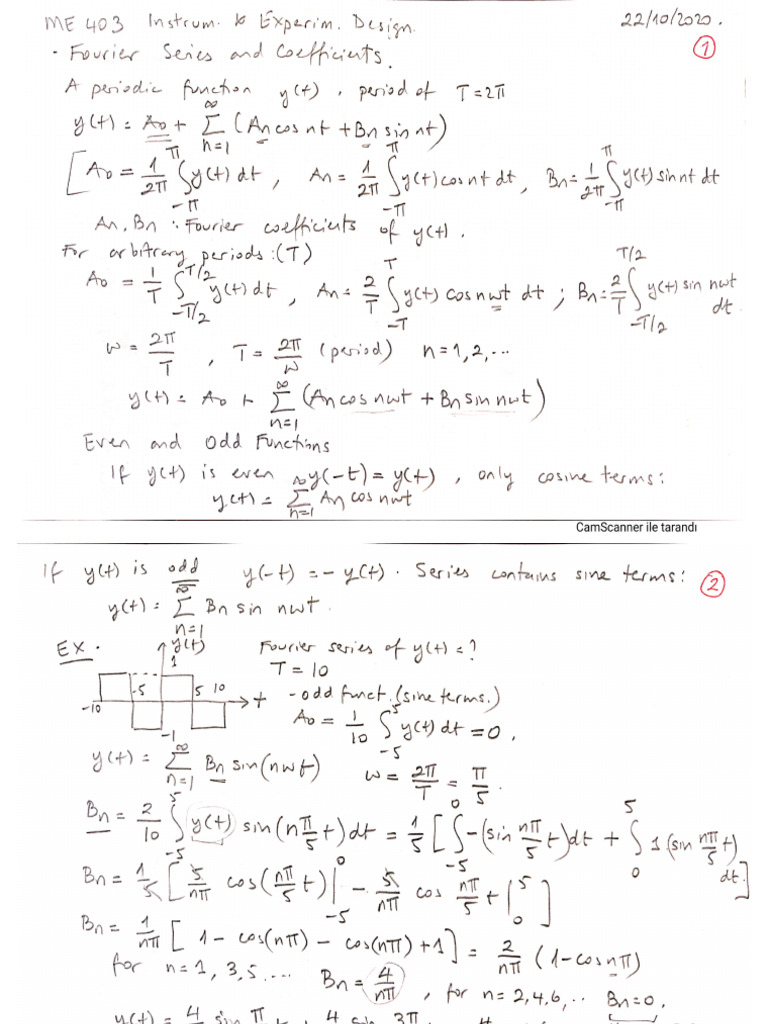 ME 403 Instrum. & Experim. Design. 22/10/2020.
①
· Fourier Series and Coefficients.
A periodic function y(t), period of T=2π
y(t) = A₀ + ∑_{n=1}^{∞} (An cos nt + Bn sin nt)
[A₀ = 1/2π ∫_{-π}^{π} y(t) dt, An = 1/2π ∫_{-π}^{π} y(t) cos nt dt, Bn = 1/2π ∫_{-π}^{π} y(t) sin nt dt
An, Bn : Fourier coefficients of y(t).
For arbitrary periods: (T)
A₀ = 1/T ∫_{-T/2}^{T/2} y(t) dt, An = 2/T ∫_{-T}^{T} y(t) cos nwt dt ; Bn = 2/T ∫_{-T/2}^{T/2} y(t) sin nwt dt.
w = 2π/T, T = 2π/w (period) n=1,2,...
y(t) = A₀ + ∑_{n=1}^{∞} (An cos nwt + Bn sin nwt)
Even and Odd Functions
If y(t) is even y(-t) = y(t), only cosine terms:
y(t) = ∑_{n=1}^{∞} An cos nwt
CamScanner ile tarandı
If y(t) is odd y(-t) = -y(t). Series contains sine terms:
②
y(t) = ∑_{n=1}^{∞} Bn sin nwt.
EX. y(t) Fourier series of y(t) = ?
1
T = 10
-10 -5 5 10 t
-1
- odd funct. (sine terms.)
A₀ = 1/10 ∫_{-5}^{5} y(t) dt = 0.
y(t) = ∑_{n=1}^{∞} Bn sin(nwt) w = 2π/T = π/5.
Bn = 2/10 ∫_{-5}^{5} y(t) sin(nπ/5 t) dt = 1/5 [∫_{-5}^{0} -(sin nπ/5 t) dt + ∫_{0}^{5} 1 (sin nπ/5 t) dt.]
Bn = 1/5 [5/nπ cos(nπ/5 t)|_{-5}^{0} - 5/nπ cos nπ/5 t |_{0}^{5}]
Bn = 1/nπ [1 - cos(nπ) - cos(nπ) + 1] = 2/nπ (1 - cos nπ)
for n=1,3,5.... Bn = 4/nπ, for n=2,4,6,.. Bn=0.